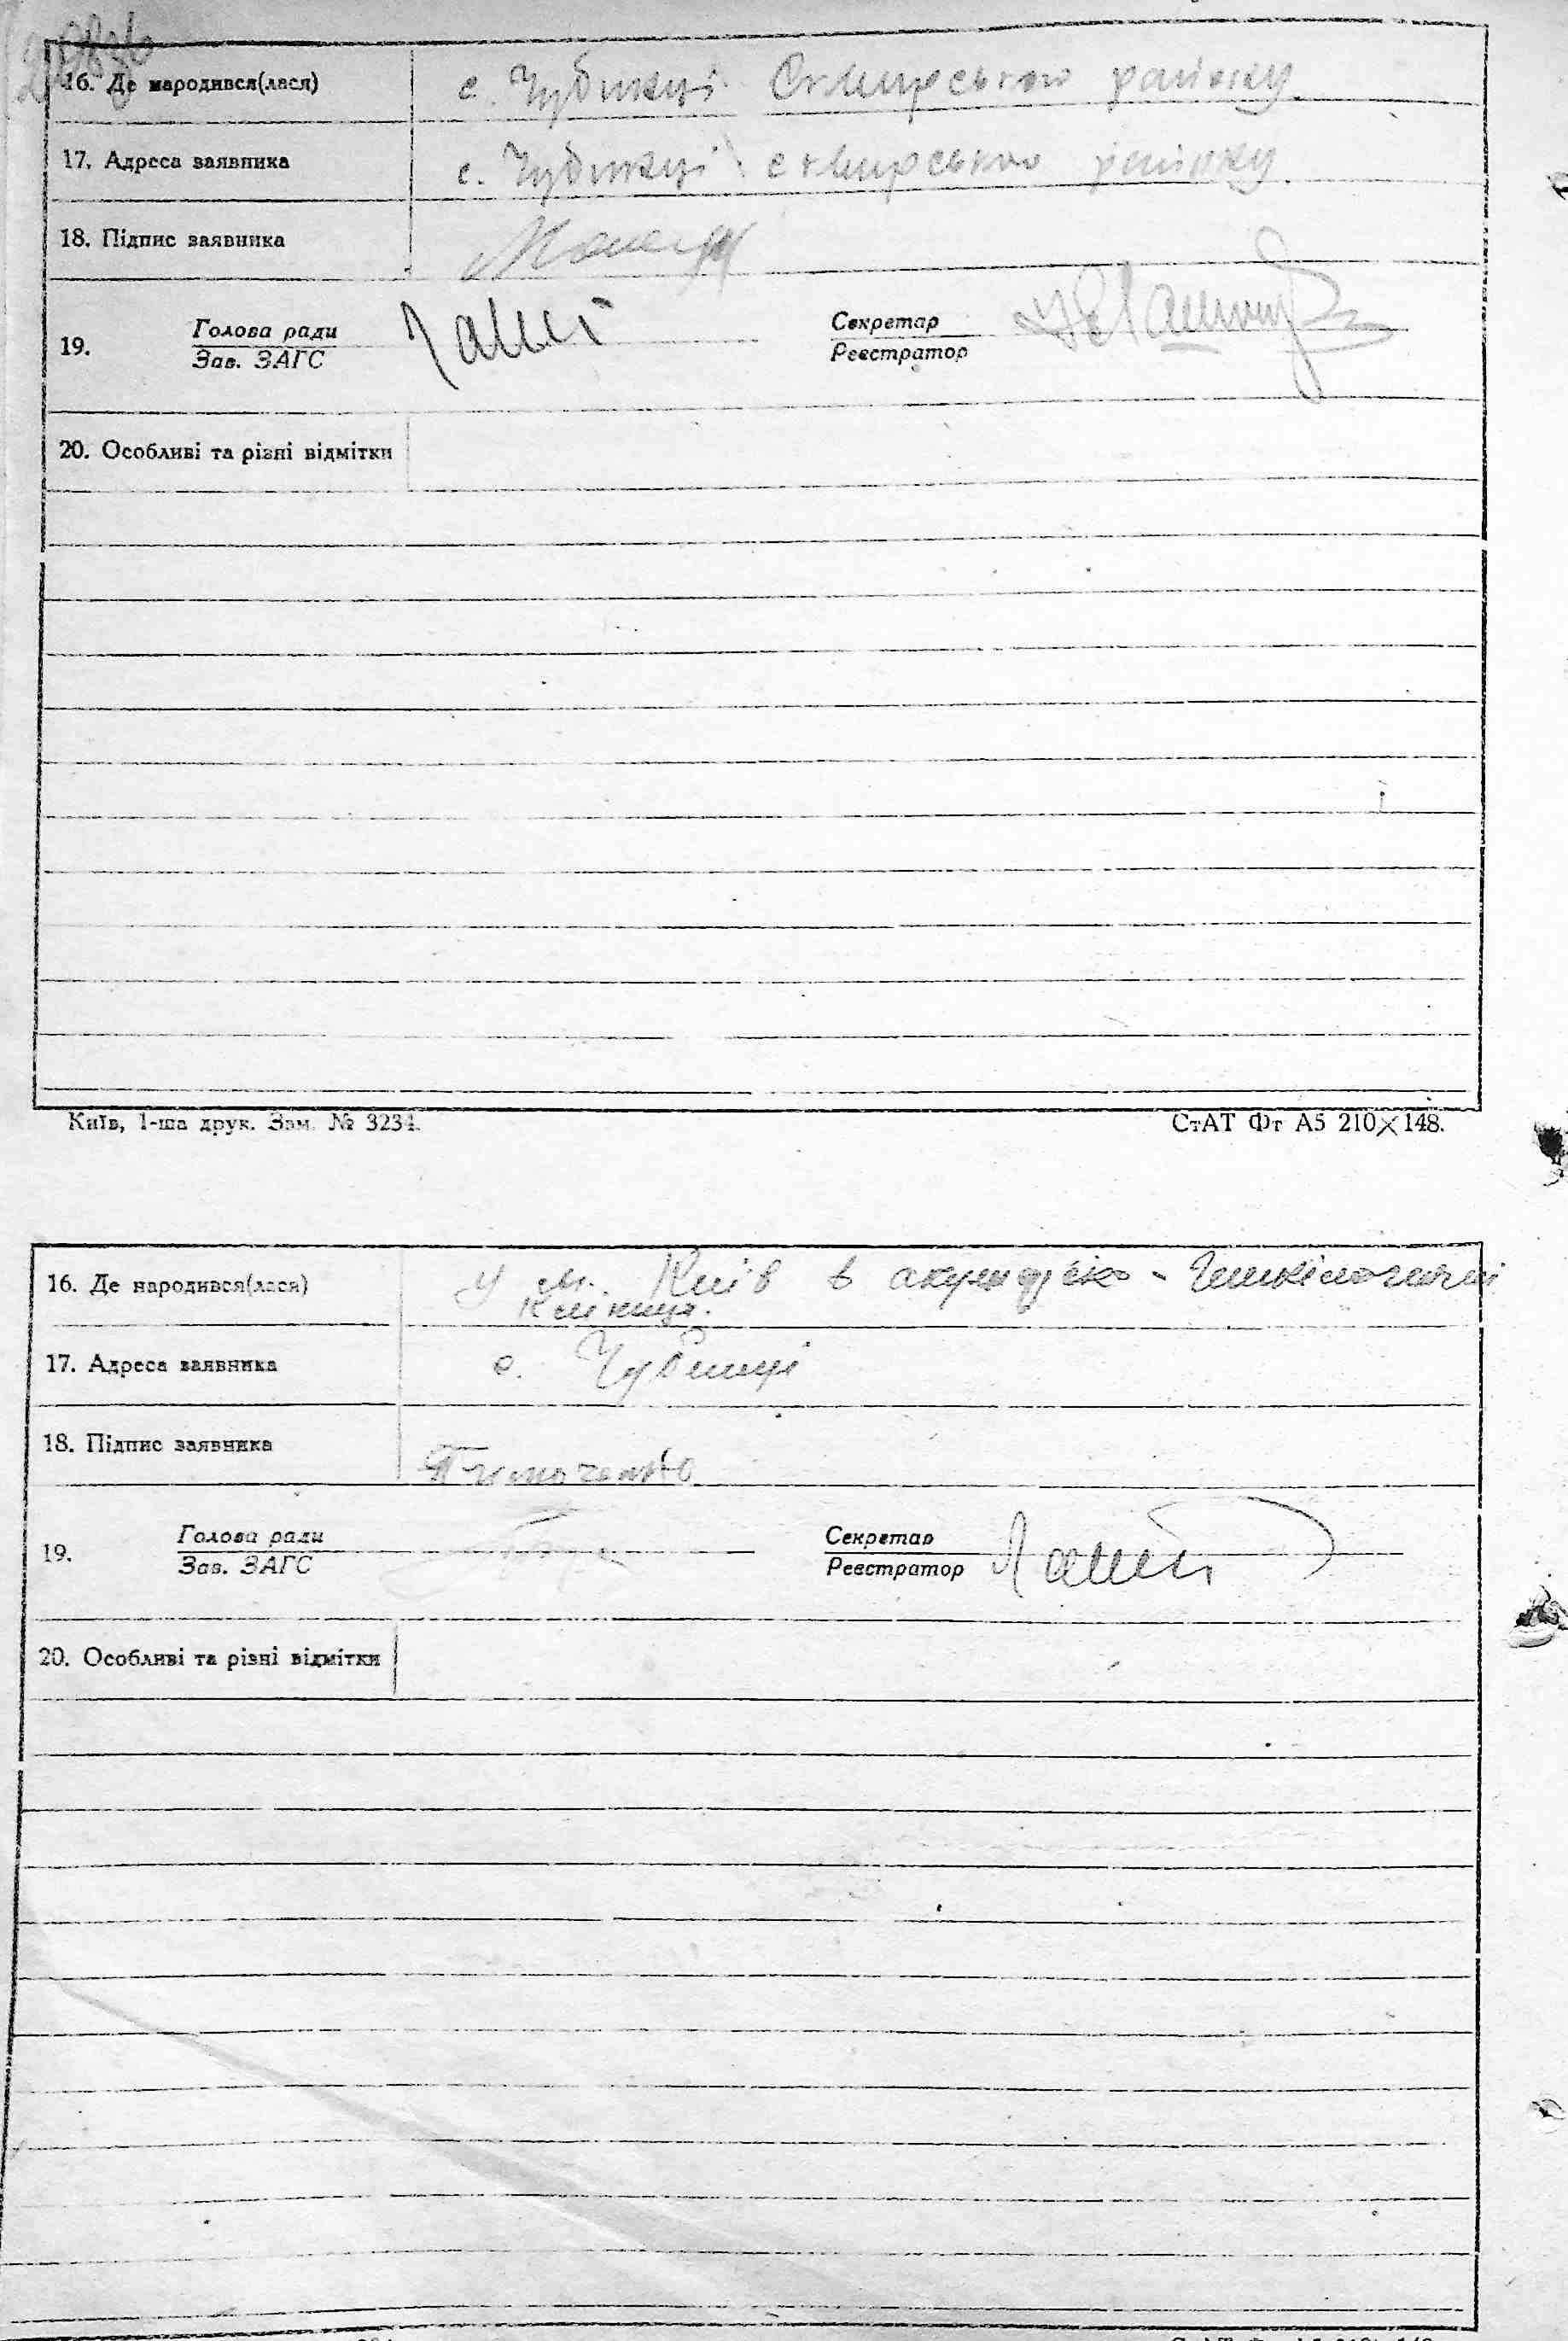 16. Де народився(лася) с. Чубинці Сквирського району
17. Адреса заявника с. Чубинці сквирського району
18. Підпис заявника
19. Голова ради Секретар
Зав. ЗАГС Реєстратор
20. Особливі та різні відмітки
Київ, 1-ша друк. Зам. № 3234. СтАТ Фт А5 210×148.
16. Де народився(лася) у м. Київ в акушерсько-гінекологичній
клініци.
17. Адреса заявника с. Чубинці
18. Підпис заявника Тимоченко
19. Голова ради Секретар
Зав. ЗАГС Реєстратор
20. Особливі та різні відмітки